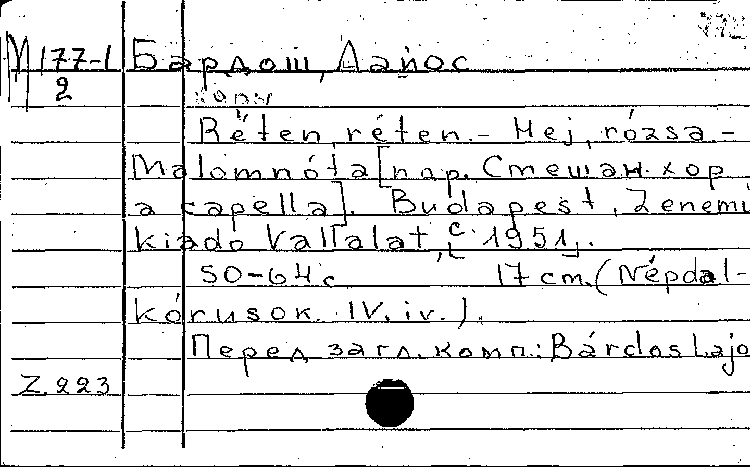 М 177-1 Бардош, Лайос
2 хоры
Réten, réten. - Hej, rózsa. -
Malomnóta [пар. Смешан. хор
a capella]. Budapest, Zenemű
kiadó Vallalat, [c. 1951].
50-64 c 17 cm. (Népdal-
kórusok. IV. ív.).
Перед загл. комп.: Bárdos Lajo
Z 223